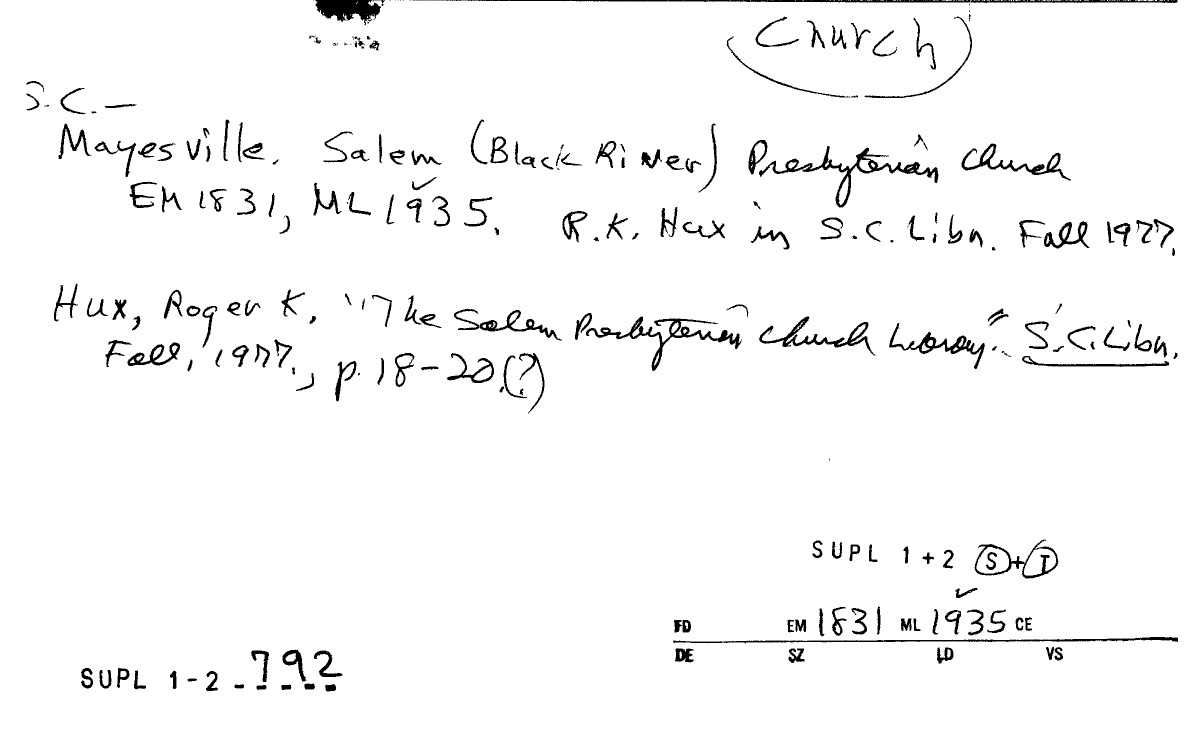 Church
S.C.—
Mayesville. Salem (Black River) Presbyterian Church
EM 1831, ML 1935. R.K. Hux in S.C. Libn. Fall 1977.
Hux, Roger K, "The Salem Presbyterian Church Library." S.C. Libn.
Fall, 1977., p. 18-20.(?)
SUPL 1+2 S+T
FD EM 1831 ML 1935 CE
DE SZ LD VS
SUPL 1-2 792